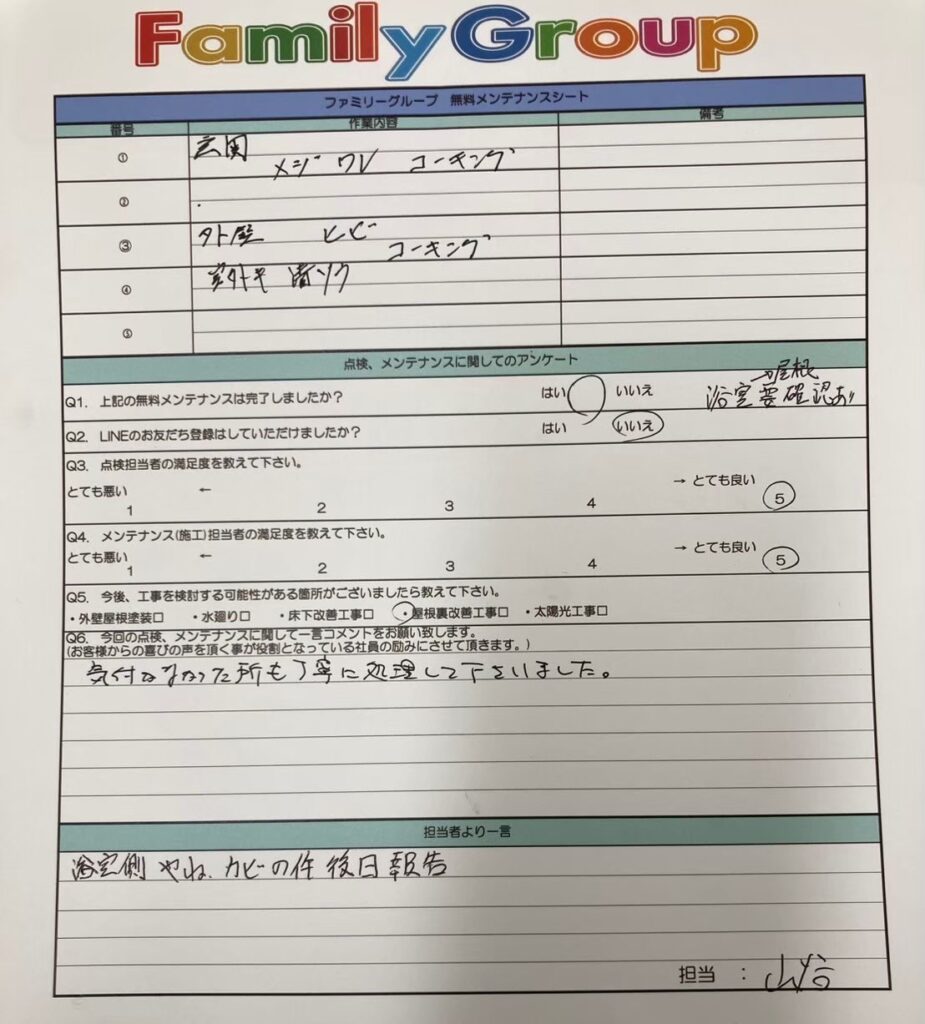 Family Group
ファミリーグループ 無料メンテナンスシート
番号 作業内容 備考
① 玄関
メジ ワレ コーキング
②
③ 外壁 ヒビ
コーキング
④ 室外キ 清ソウ
⑤
点検、メンテナンスに関してのアンケート
屋根
Q1. 上記の無料メンテナンスは完了しましたか? はい いいえ 浴室要確認あり
Q2. LINEのお友だち登録はしていただけましたか? はい いいえ
Q3. 点検担当者の満足度を教えて下さい。
とても悪い ← → とても良い
1 2 3 4 5
Q4. メンテナンス(施工)担当者の満足度を教えて下さい。
とても悪い ← → とても良い
1 2 3 4 5
Q5. 今後、工事を検討する可能性がある箇所がございましたら教えて下さい。
・外壁屋根塗装□ ・水廻り□ ・床下改善工事□ ・屋根裏改善工事□ ・太陽光工事□
Q6. 今回の点検、メンテナンスに関して一言コメントをお願い致します。
(お客様からの喜びの声を頂く事が役割となっている社員の励みにさせて頂きます。)
気付かなかった所も丁寧に処理して下さいました。
担当者より一言
浴室側 やね、カビの件 後日報告
担当 :